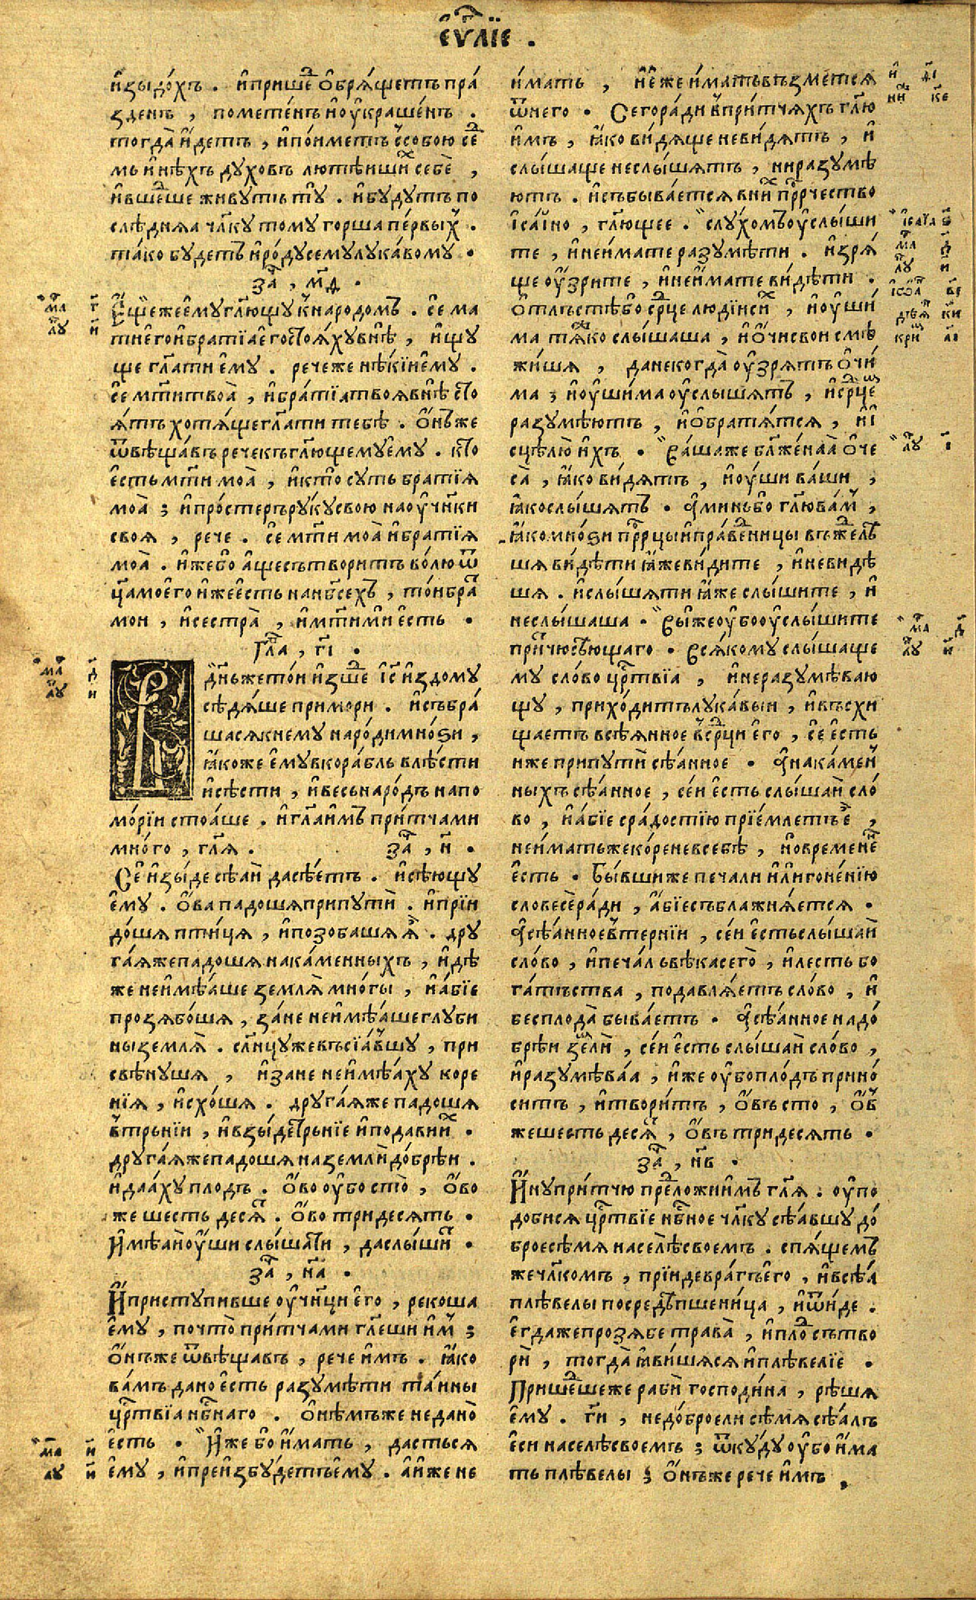 єѵⷢ҇лїе .
и҆зыдо́хъ . и҆прише́ⷣ ѡ҆бря́щетъ пра́
зденъ , пометенъ и҆ оу҆краше́нъ .
тогда̀ и҆детъ , и҆по́иметъ ссобою се́ⷣ
мь и҆нѣхъ духовъ лютѣишиⷯ себѐ ,
и҆вше́ⷣше живутъ тꙋ̀ . и҆бꙋ́дꙋтъ по
слѣ́дняа чл҃кꙋ томꙋ горша пе́рвыⷯ .
та́ко бꙋ́детъ и҆ро́дꙋ семꙋ лꙋка́вомꙋ .
заⷱ҇ , м҃д .
Е҆ще́же є҆мꙋ гл҃ющꙋ к̾народомъ . се мⷶ҇
ти є҆го и҆бра́тїа є҆го стоя́хꙋ внѣ̀ , и҆щꙋ
ще гл҃ати є҆мꙋ . рече́же нѣ́кїи є҆мꙋ .
се мт҃и твоѐа , и҆бра́тїа твоя̀ внѣ̀ сто
я́тъ хотя́ще гл҃ати тебѣ̀ . ѻ҆́нъже
ѿвѣща́въ рече къ гл҃ющемꙋ є҆мꙋ . кто̀
є҆сть мт҃и моа̀ , и҆кто̀ сꙋть братїѧ
моа̀ ; и҆про́стеръ рꙋ́кꙋ свою на оу҆ч҃ики
своя , рече . се мт҃и моа̀ и҆бра́тїѧ
моа̀ . и҆же бо а҆ще сътвори́тъ во́лю ѿ
ц҃а моего̀ и҆же є҆сть на нб҃сехъ , то́и бра́ⷮ
мои , и҆сестра̀ , и҆мт҃и ми є҆сть .
гла́ , г҃і .
В̾ дн҃ь же то́и и҆зше́ⷣ і҆с҃ и҆здомꙋ
сѣдя́ше при мори . и҆събра́
шася к̾немꙋ наро́ди мно́ѕи ,
ꙗ҆коже є҆мꙋ вкора́бль влѣ́сти
и҆сѣ́сти , и҆ весь наро́дъ на по
мо́рїи стоа́ше . и҆гл҃а и҆мъ при́тчами
мно́го , гл҃я . заⷱ҇ , н҃ .
Се и҆зы́де сѣ́аи да сѣ́етъ . и҆сѣ́ющꙋ
є҆мꙋ . ѻ҆ва падоша при пꙋтѝ . и҆прїи
до́шя пти́ця , и҆позобашя ѧ҆̀ . дрꙋ
га́яже падоша на ка́менныхъ , и҆дѣ́
же неи҆мѣ́аше землѧ̀ мно́гы , и҆а҆́бїе
прозябо́шя , за́не неи҆мѣ́аше глꙋби
ны землѧ̀ . сл҃нцꙋже въсїа́вшꙋ , при
свѣ́нꙋшя , и҆зане неи҆мѣ́ахꙋ коре
нїя , и҆схо́шя . дрꙋга́яже падошя
в̾трънїи , и҆взы́де трънїе и҆подави́ иⷯ .
дрꙋга́яже падошя на землѝ до́брѣи .
и҆даа́хꙋ пло́дъ . ѻ҆́во оу҆бо сто̀ , ѻ҆́во
же шесть десѧ́ⷮ . ѻ҆́во три́десять .
И҆мѣ́аи оу҆́ши слы́шати , да слы́шиⷮ .
заⷱ҇ , н҃а .
И҆ пристꙋпивше оу҆ч҃ници є҆го , рекоша
є҆мꙋ , почто̀ при́тчами гл҃еши и҆́мⸯ ;
ѻ҆́нъже ѿвѣща́въ , рече и҆мъ . ꙗ҆ко
ва́мъ дано̀ є҆сть разꙋмѣти та́ины
црⷭ҇твїа нбⷭ҇наго . ѻ҆нѣмъже не дано̀
є҆сть . И҆́же бо и҆́мать , дасться
є҆мꙋ , и҆преи҆збꙋ́детъ є҆мꙋ . а҆и҆же не
и҆мать , и҆є҆́же и҆́мать въ́зметсѧ
ѿ него . Сего ра́ди в̾при́тчяхъ гл҃ю
и҆мъ , ꙗ҆ко ви́дяще неви́дятъ , и҆
слы́шаще неслы́шятъ , нира́зꙋмѣ
ютъ . и҆събыва́ется в̾ниⷯ прⷪ҇рчество
і҆са́їино , гл҃ющее . слꙋ́хомъ оу҆слы́ши
те , и҆неи҆мате разꙋмѣ́ти . и҆зря́
ще оу҆́зрите , и҆неи҆мате ви́дѣти .
ѻ҆тлъстѣ́ бо ср҃це людїи сиⷯ , и҆оу҆ши́
ма тѧ́жко слы́шаша , и҆ ѻ҆́чи свои смѣ
жи́шя , да некогда̀ оу҆́зрятъ ѻ҆чи́
ма ; и҆оу҆ши́ма оу҆слы́шятъ , и҆ср҃цеⷨ
разꙋмѣ́ютъ , и҆ѡ҆братя́тся , и҆ и҆
сцѣлю̀ и҆хъ . Ва́шаже бл҃же́наа ѻ҆че
са̀ , ꙗ҆ко ви́дятъ , и҆оу҆́ши ва́ши ,
ꙗ҆ко слы́шятъ . А҆ми́нь бо гл҃ю ва́мⸯ ,
ꙗ҆ко мно́ѕи прⷪ҇рцы и҆пра́веⷣницы въжелѣ
шя ви́дѣти ꙗ҆же ви́дите , и҆невидѣ́
шя . и҆слы́шяти ꙗ҆́же слы́шите , и҆
неслы́шаша . Вы́же оу҆бо оу҆слы́шите
при́тчю сѣ́ющаго . Вся́комꙋ слы́шаще
мꙋ сло́во црⷭ҇твїа , и҆неразꙋмѣ́ваю
щꙋ , прихо́дитъ лꙋка́выи , и҆въсхи
щаетъ всѣ́янное в̾ср҃ци є҆го , се́ є҆сть
иже припꙋтѝ сѣ́анное . А҆на ка́меⷩ
ныхъ сѣ́анное , се́и є҆сть слы́шаи сло́
во , и҆а҆́бїе срадостїю прїе́млетъ є҆̀ ,
неи҆мать же коренев̾себѣ̀ , но вре́менеⷩ
є҆сть . Бы́вшиже печали и҆лиго́ненїю
словесѐ ра́ди , а҆́бїе съблажня́ется .
А҆сѣ́анное в̾тернїи , се́и є҆сть слы́шаи
сло́во , и҆печа́ль вѣ́ка сего̀ , и҆ле́сть бо
га́тьства , подавля́етъ сло́во , и҆
бесплода̀ быва́етъ . А҆сѣ́анное на до́
брѣи землѝ , се́и є҆сть слы́шаи сло́во ,
и҆разꙋмѣва́а , и҆же оу҆бо плодъ прино́
ситъ , и҆творитъ , ѻ҆́въ сто , ѻ҆́въ
же шесть деся́ⷮ , ѻ҆́въ три́десять .
заⷱ҇ , н҃в .
И҆́нꙋ при́тчю преⷣложи и҆мъ гл҃я . оу҆по
до́бися црⷭ҇твїе нбⷭ҇ное чл҃кꙋ сѣ́авшꙋ до́
брое сѣ́мя на селѣ̀ своемъ . спя́щемъ
же чл҃комъ , прїи́де вра́гъ є҆го , и҆всѣ́а
плѣвелы посредѣ̀ пшеница , и҆ѿи́де .
є҆гдаже прозя́бе трава̀ , и҆плоⷣ сътво
рѝ , тогда̀ ꙗ҆ви́шяся и҆плѣвелїе .
Прише́ⷣшеже рабѝ господи́на , рѣ́шя
є҆мꙋ . гⷭ҇и , не до́брое ли сѣ́мя сѣ́алъ
є҆си на селѣ̀ своемъ ; ѿкꙋ́дꙋ оу҆бо и҆́ма
ть плѣвелы ; ѻ҆́нъже рече и҆мъ ,